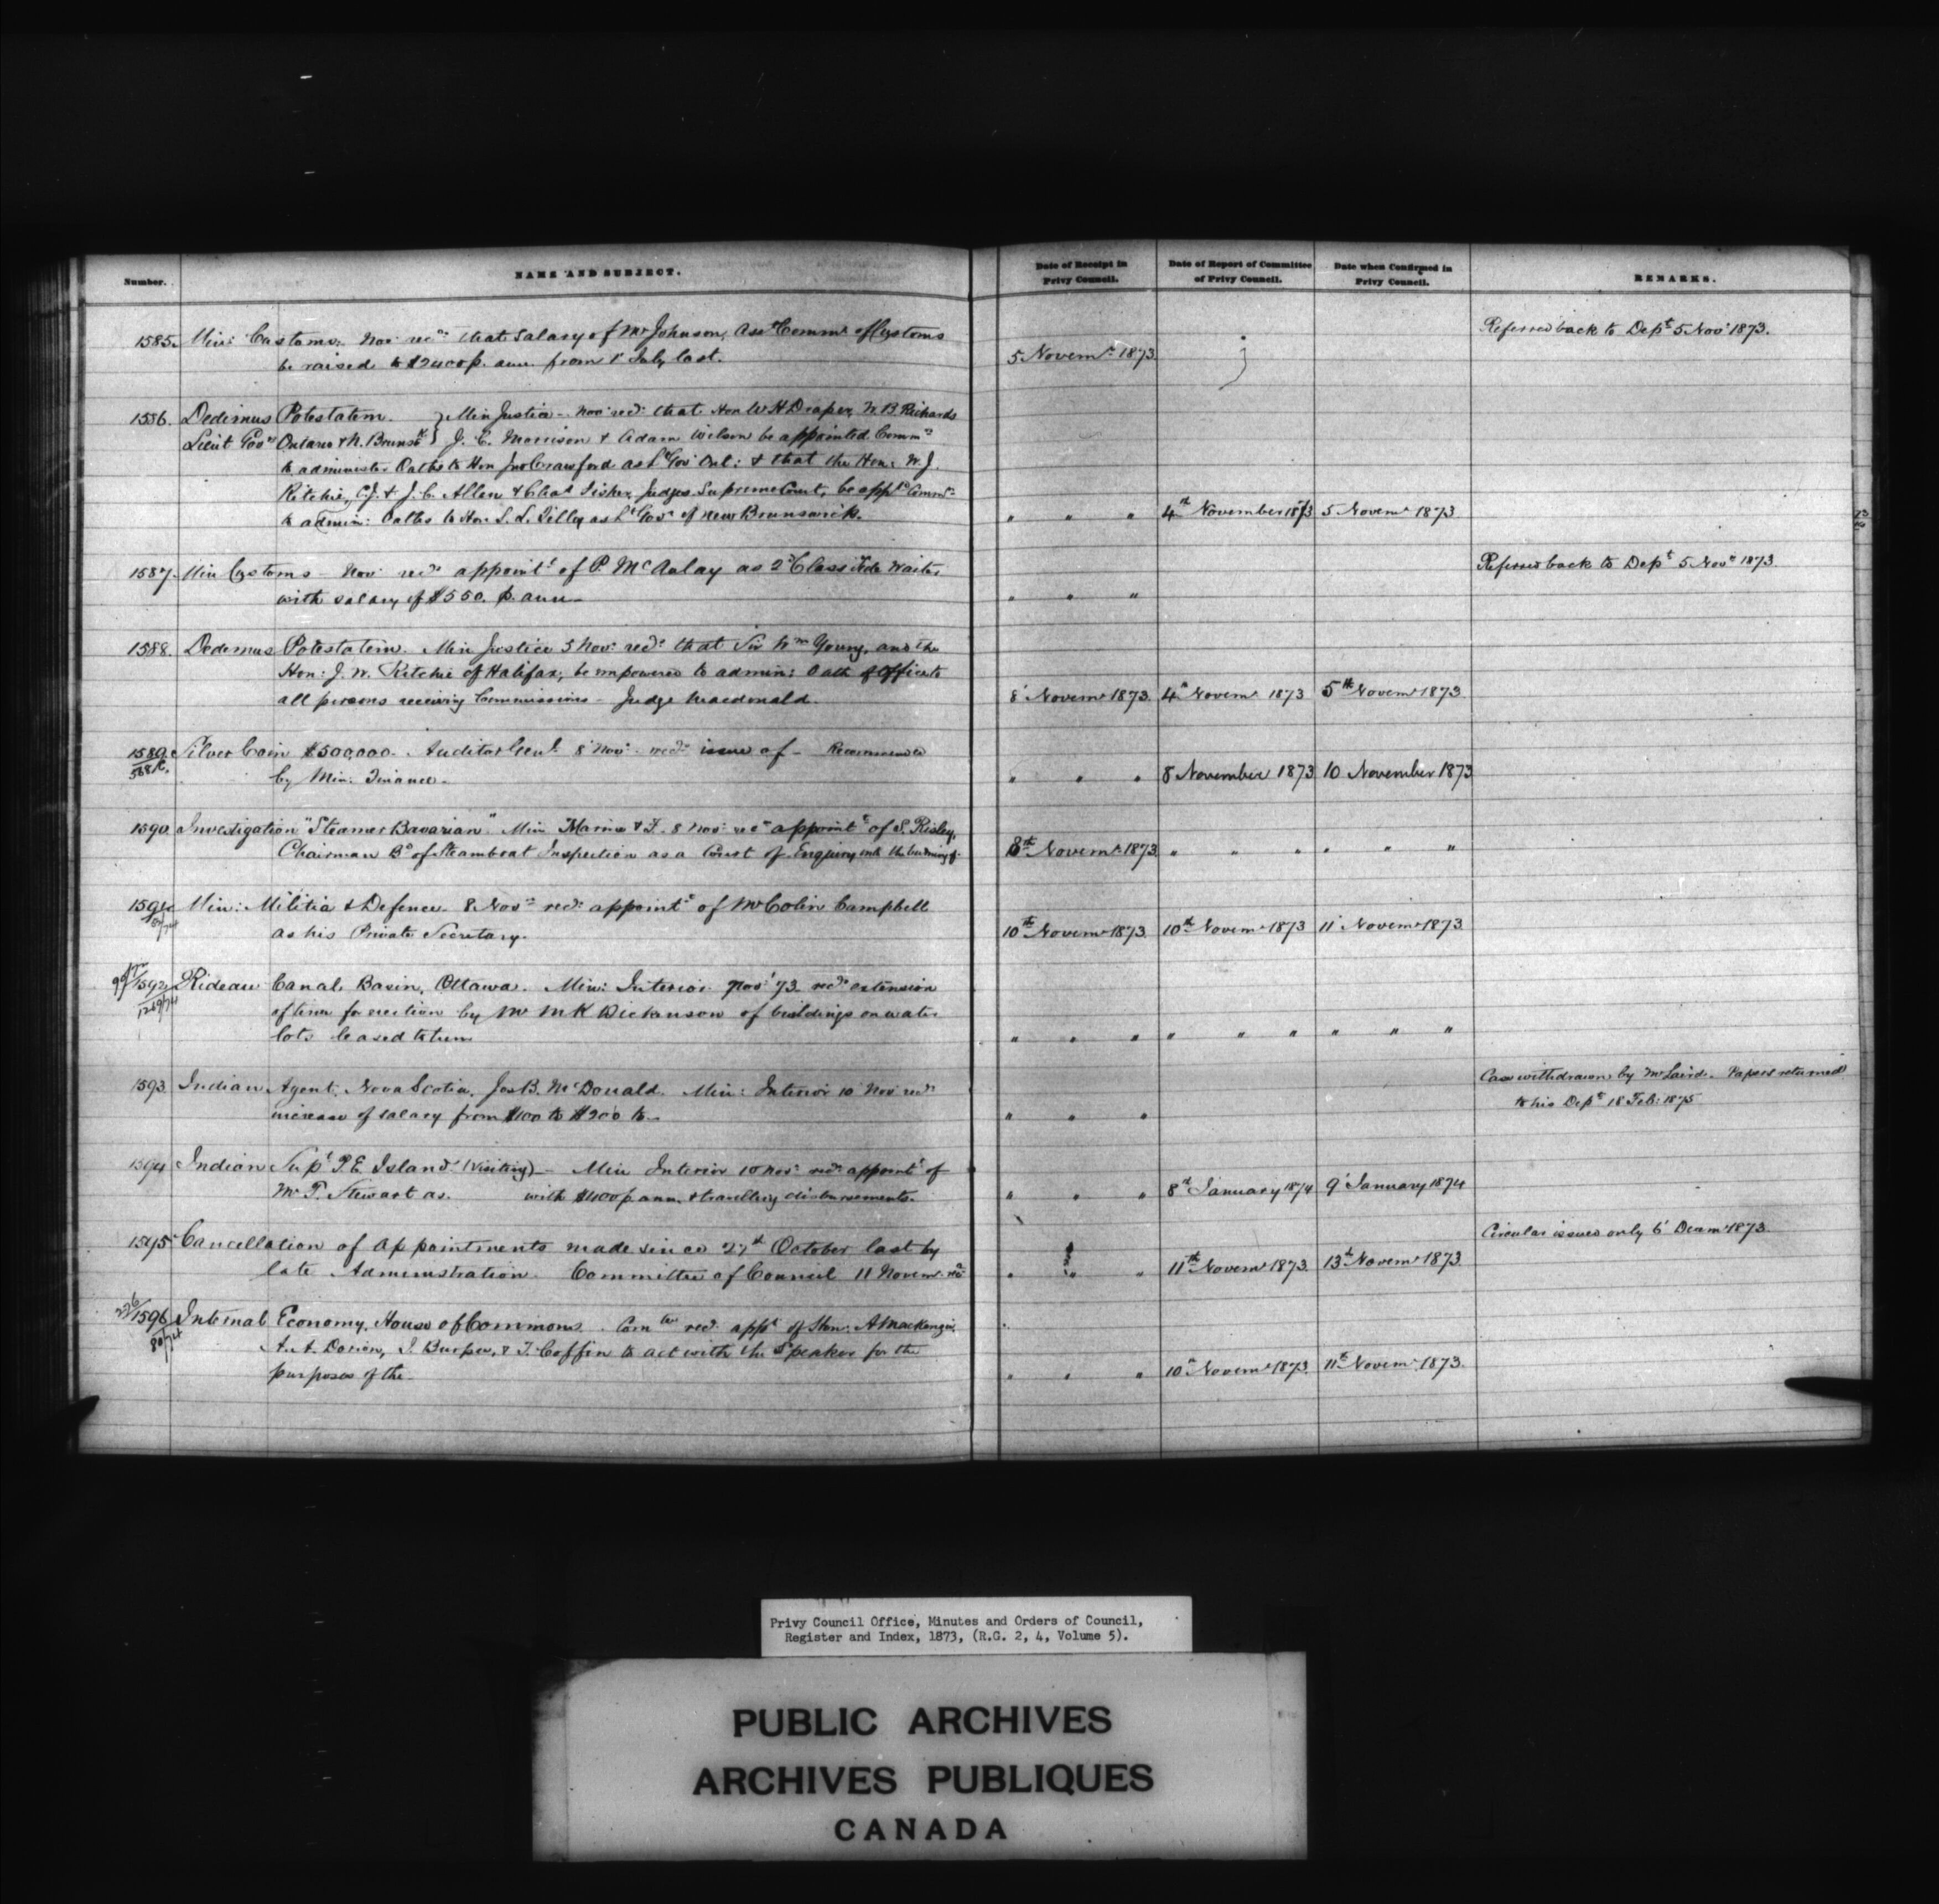 Number. NAME AND SUBJECT. Date of Receipt in Privy Council. Date of Report of Committee of Privy Council. Date when Confirmed in Privy Council. REMARKS.
1585. Min: Customs. Nov: recds that Salary of Mr Johnson, Asst Commr of Customs Referred back to Dept 5 Nov: 1873.
be raised to $2400 p. ann. from 1' July last. 5 Novemr 1873
1586. Dedimus Potestatem. } Min Justice - Nov: recds that Hon W H Draper, W. B Richards
Lieut Govrs Ontario & N. Brunsk } J. C. Morrison & Adam Wilson be appointed Commrs
to administer Oaths to Hon Jno Crawford as Lt Gov Ont: & that the Hon: W. J.
Ritchie, C.J. & J. C. Allen & Chas Fisher, Judges Supreme Court, be apptd Commrs
to admin: Oaths to Hon S. L. Tilley as Lt Govr of New Brunswick. " " " 4th November 1873 5 Novemr 1873
1587. Min Customs - Nov: recds appointt of P. McAulay as 2d Class Tide Waiter Referred back to Dept 5 Novr 1873
with salary of $550. p. ann - " " "
1588. Dedimus Potestatem. Min Justice 5 Nov: recds that Sir Wm Young, and the
Hon: J. W. Ritchie of Halifax, be empowered to admin: Oath of Office to
all persons receiving Commissions - Judge Macdonald. 8' Novemr 1873. 4th Novemr 1873 5th Novemr 1873
1589. Silver Coin $500,000. Auditor Genl. 8' Nov: recds issue of - Recommended
568 by Min: Finance - " " " 8 November 1873 10 November 1873
1590. Investigation "Steamer Bavarian" Min Marine & F. 8 Nov: recds appointt of S. Risley,
Chairman Bd of Steamboat Inspection as a Court of Enquiry into the burning of. 8th Novemr 1873 " " " " " "
1591 Min: Militia & Defence - 8 Novr recds appointt of Mr Colin Campbell
as his Private Secretary. 10th Novemr 1873. 10th Novemr 1873 11' Novemr 1873
1592 Rideau Canal Basin, Ottawa. Min: Interior Nov: '73. recds extension
1269/74 of time for erection by Mr M K Dickinson of buildings on water
lots leased to him " " " " " " " " "
1593. Indian Agent, Nova Scotia, Jos B. McDonald. Min: Interior 10 Nov recds Case withdrawn by Mr Laird. Papers returned
increase of salary from $100 to $200 to - " " " to his Dept 18 Feb: 1875
1594 Indian Supt P. E. Island (Visiting) - Min Interior 10 Nov: recds appointt of
Mr T. Stewart as. with $400 p ann. & travelling disbursements. " " " 8th January 1874 9' January 1874
1595 Cancellation of Appointments made since 27th October last by Circular issued only 6' Decemr 1873.
late Administration. Committee of Council 11 Novemr " " " 11th Novemr 1873. 13th Novemr 1873
226/1596 Internal Economy, House of Commons. Comtee recd appt of Hon: A Mackenzie,
80/74 A. A. Dorion, I. Burpee, & T. Coffin to act with the Speaker for the
purposes of the - " " " 10th Novemr 1873. 11th Novemr 1873.
Privy Council Office, Minutes and Orders of Council,
Register and Index, 1873, (R.G. 2, 4, Volume 5).
PUBLIC ARCHIVES
ARCHIVES PUBLIQUES
CANADA